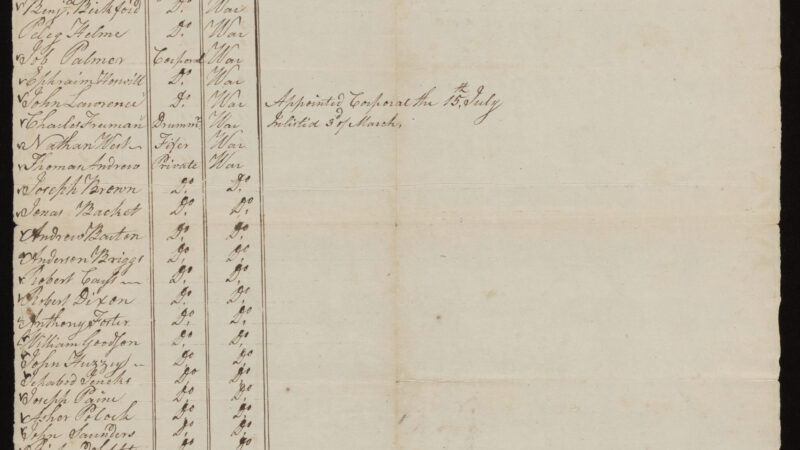 Benj. Bickford Do War
Peleg Helme Do War
Job Palmer Corporal War
Ephraim Do War
John Lawrence Do War Appointed Corporal the 15th July
Charles Freeman Drummr War Inlisted 3d of March
Nathan West Fifer War
Thomas Andrew Private War
Joseph Brown Do Do
Jonas Backet Do Do
Andrew Barton Do Do
Anderson Briggs Do Do
Robert Do Do
Robert Dixon Do Do
Anthony Foster Do Do
William Goodson Do Do
John Huzzey Do Do
Ichabod Jencks Do Do
Joseph Paine Do Do
Asher Polock Do Do
John Saunders Do Do
Do Do